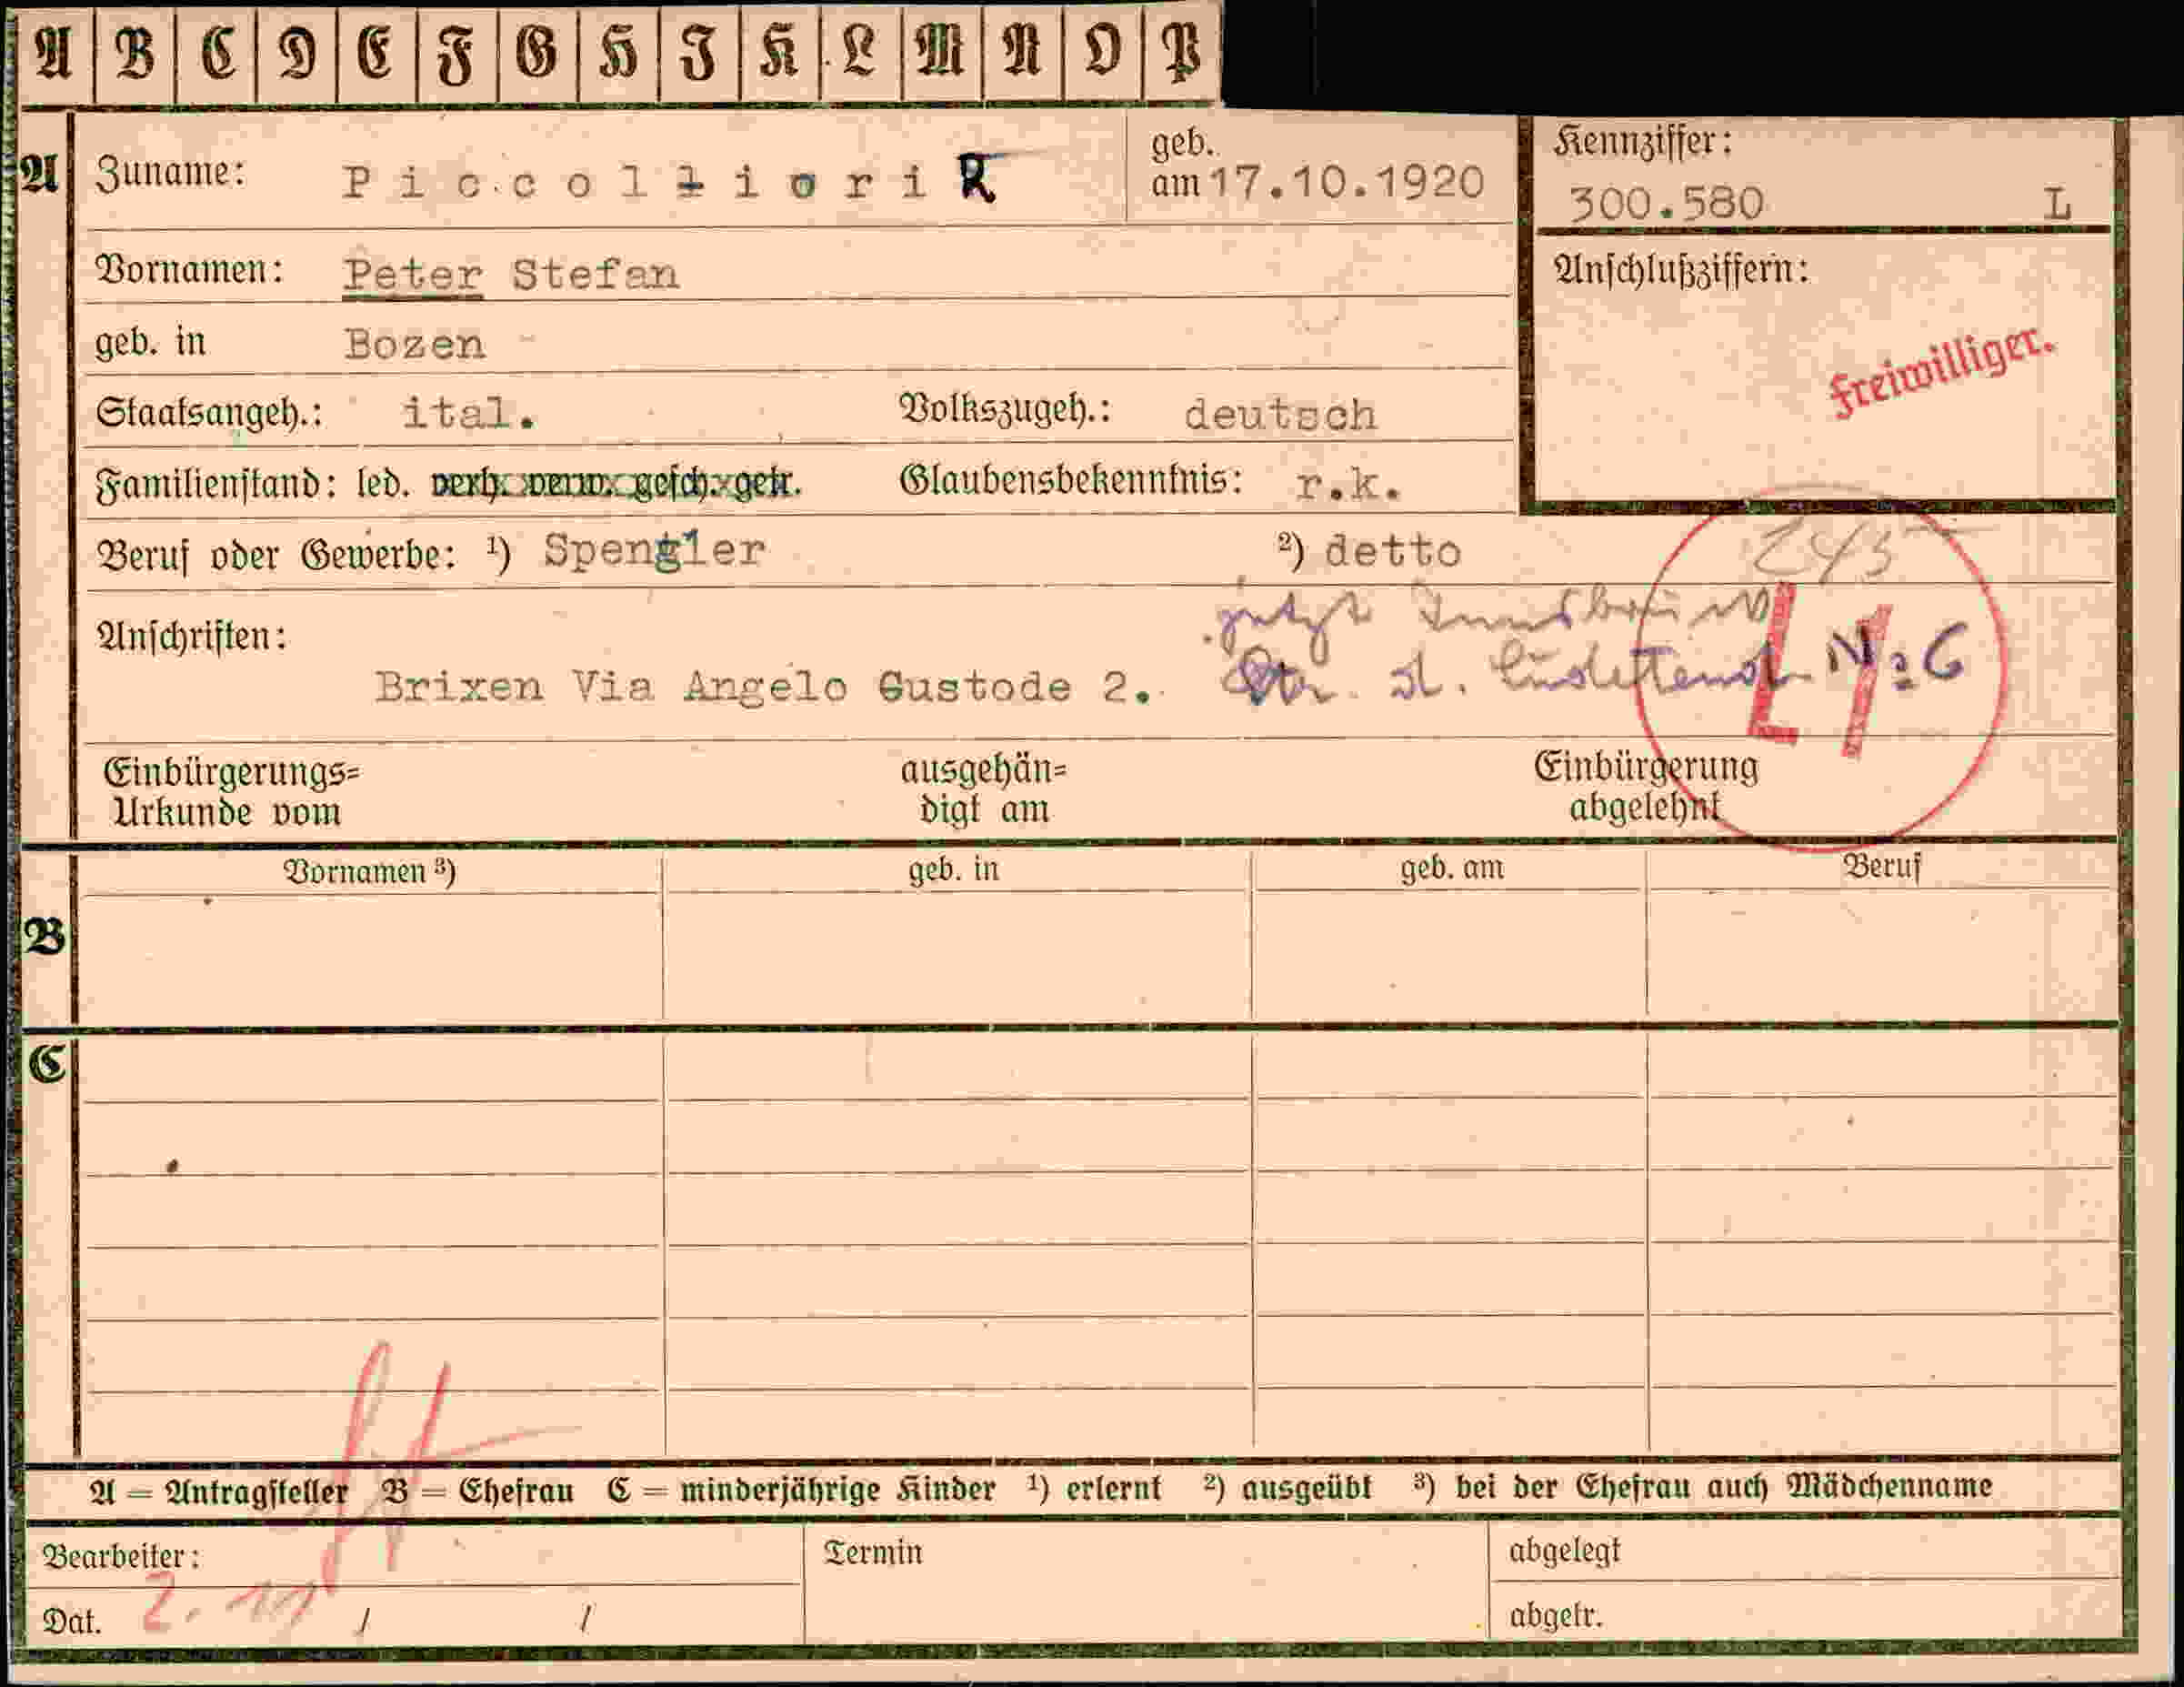 A B C D E F G H I K L M N O P
A Zuname: Piccolliori R geb. am 17.10.1920 Kennziffer: 300.580 L
Vornamen: Peter Stefan Anschlußziffern:
geb. in Bozen freiwilliger.
Staatsangeh.: ital. Volkszugeh.: deutsch
Familienstand: led. verh. verw. gesch. getr. Glaubensbekenntnis: r.k.
Beruf oder Gewerbe: ¹) Spengler ²) detto 245
jetzt Innsbruck
Anschriften:
Brixen Via Angelo Gustode 2. Nr. 6
L1
Einbürgerungs=
Urkunde vom
ausgehän=
digt am
Einbürgerung
abgelehnt
Vornamen ³) geb. in geb. am Beruf
B
C
A = Antragsteller B = Ehefrau C = minderjährige Kinder ¹) erlernt ²) ausgeübt ³) bei der Ehefrau auch Mädchenname
Bearbeiter: Termin abgelegt
Dat. 2. 11 / / abgetr.